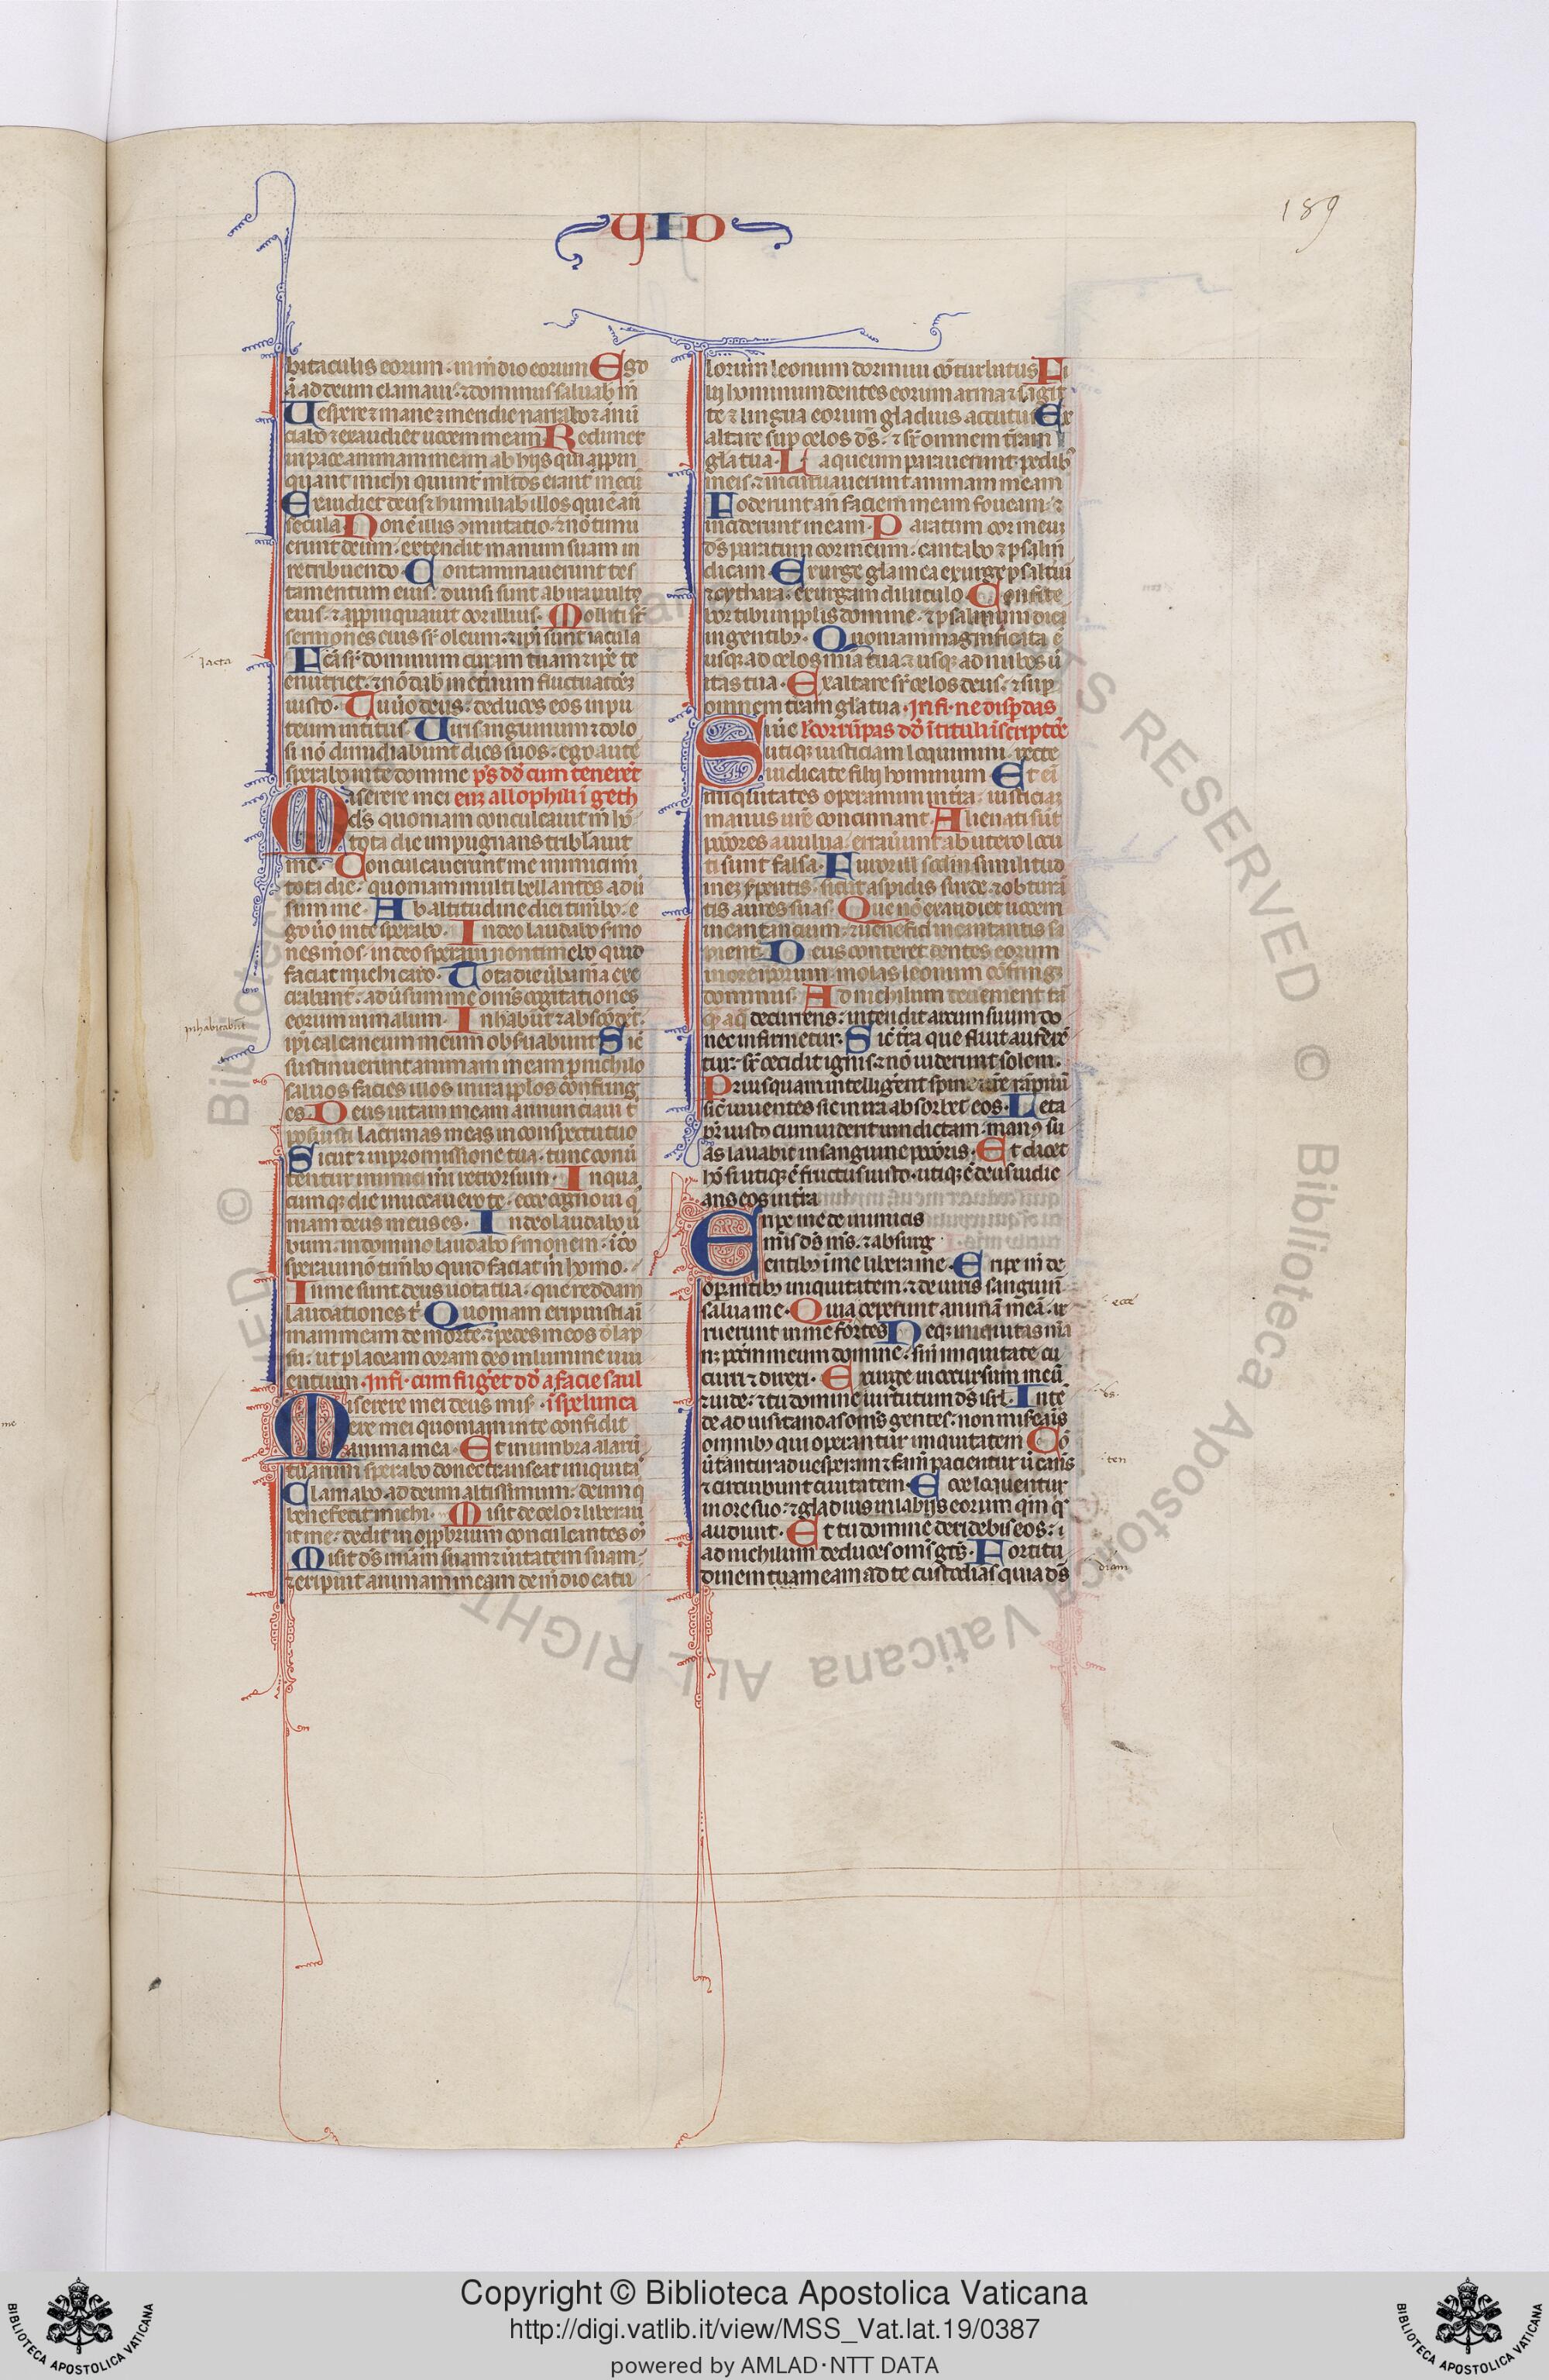 VID
189
bitaculis eorum · in mĩdio eorum Ego
aũ ad deum clamaui · ⁊ dominus saluab̃ m̃
Uespere ⁊ mane ⁊ meridie narrabo ⁊ ãnũ
ciabo ⁊ exaudiet uocem meam Redimet
in pace animam meam ab hijs qui appꝛin
quant michi quĩnt̃ mltos erant mecũ
Exaudiet deus ⁊ humiliab̃ illos qui ẽ añ
secula Non ẽ illis ↄmutatio · ⁊ nõ timu
erunt deum · extendit manum suam in
retribuendo · Contaminauerunt tes
tamentum eius · diuisi sunt ab ira uultꝰ
eius · ⁊ appꝛinquauit cor illius · Molliti sũt
sermones eius sr̃ oleum · ⁊ ipi sunt iacula
iacta
sr̃ dominum curam tuam ⁊ ipẽ te
enutriet · ⁊ nõ dab̃ in etr̃num fluctuatõꝫ
iusto · Tu ũo deus · deduces eos in pu
teum intitus · Uiri sanguinum ⁊ dolo
si nõ dimidiabunt dies suos · ego autẽ
sperabo in te domine ps̃ dd̃ cum teneret̃
Miserere mei eũ allophili ĩ geth
ds̃ quoniam conculcauit m̃ hõ ·
tota die impugnans tribl̃auit
me · Conculcauerunt me inimici m̃i
tota die · quoniam multi bellantes adũ
sum me · Ab altitudine diei timẽbo · e
go ũo in te sperabo · In deo laudabo s̃mo
nes mõs · in deo speraui non timebo quid
faciat michi caro · Tota die ũba m̃a exe
crabunt̃ · adũsum me om̃s cogitationes
eorum in malum · Inhab̃ũt ⁊ abscõdẽt ·
inhabitabũt
ipi calcaneum meum obs̃uabunt Sic̃
sustinuerunt animam meam ꝓ nichilo
saluos facies illos in ira ppl̃os confring
es · Deus uitam meam annunciaui t̃
posuisti lacrimas meas in conspectu tuo
Sicut ⁊ in promissione tua · tunc conũ
tentur inimici m̃i retrorsum · In qua
cumqꝫ die inuocauero te · ecce cognoui q̃
niam deus meus es · In deo laudabo ũ
bum · in domino laudabo s̃monem · ĩ dõ
speraui nõ timẽbo quid faciat m̃ homo ·
In me sunt deus uota tua · que reddam
laudationes t̃ Quoniam eripuisti añ
mam meam de morte · ⁊ pedes meos d̃ lap
su · ut placeam coram deo in lumine uiu
entium · In fi · cum fuget̃ dd̃ a facie saul
Miserere mei deus mis̃ · ĩ spelunca
ere mei quoniam in te confidit
anima mea · Et in umbra alarũ
tuarum sperabo donec transeat iniquita
Clamabo ad deum altissimum · deum q̃
benefecit michi · Misit de celo ⁊ liberau
it me · dedit in oppꝛbrium conculcantes m̃
Misit ds̃ m̃iam suam ⁊ ũitatem suam ·
⁊ eripuit animam meam de m̃dio catu
lorum leonum dormiui cõturbatus Fi
lij hominum dentes eorum arma ⁊ sagit
te ⁊ lingua eorum gladius acutus Ex
altare sup̃ celos ds̃ · ⁊ sr̃ omnem tr̃am
gl̃a tua · Laqueum parauerunt pedibꝰ
meis · ⁊ incuruauerunt animam meam
Foderunt an̄ faciem meam foueam · ⁊
inciderunt in eam · Paratum cor meuꝫ
ds̃ paratum cor meum · cantabo ⁊ psalm̃
dicam Exurge gl̃a mea exurge psaltiũ
⁊ cythara · exurgam diluculo Confite
bor tibi in ppl̃is domine · ⁊ psalmum dicã
in gentibꝫ · Quoniam magnificata ẽ
usqꝫ ad celos m̃ia tua ⁊ usqꝫ ad nubes ũ
itas tua · Exaltare sr̃ celos deus · ⁊ sup̃
omnem tr̃am gl̃a tua · In fi · ne disp̃das
Si ũe l corrũpas dd̃ ĩ tituli ĩscriptõe
utiqꝫ iusticiam loquimini · recte
iudicate filij hominum Et eĩ
iniquitates operamini in tr̃a · iusticiaꝫ
manus ur̃e concinnant Alienati sũt
pctõres a uulua · errauũt ab utero locu
ti sunt falsa · Furor ill̃ scd̃m similitud
ineꝫ s̃pentis · sicut aspidis surde ⁊ obturã
tis aures suas · Que nõ exaudiet uocem
incantancium · ⁊ uenefici incantantis sa
pient̃ · Deus conteret dentes eorum
in ore ipsorum · molas leonum cõfringꝫ
dominus · Ad nichilum deuenient tã
qꝫ aq̃ decurrens · intendit arcum suum do
nec infirmetur · Sic̃ cera que fluit aufer̃ẽ
tur · sr̃ cecidit ignis ⁊ nõ uiderunt solem ·
Priusquam intelligẽnt spine ur̃e rãpnũ
sic̃ uiuentes sic in ira absorbet eos · Leta
bit̃ iustꝰ cum uiderit uindictam · manꝰ su
as lauabit in sanguine pctõris · Et dicet
hõ si utiqꝫ ẽ fructus iusto · utiqꝫ ẽ deus iudic
ans eos in tr̃a
Eripe me de inimicis
m̃is ds̃ m̃s · ⁊ ab surg
entibꝫ ĩ me libera me · Eripe m̃ de
op̃antibꝫ iniquitatem · ⁊ de uiris sanguin̄
salua me · Quia ceperunt animã meã · ir
ecce
ruerunt in me fortes Neqꝫ iniquitas m̃a
nꝫ pctm̃ meum domine · sin̄ iniquitate cu
curri ⁊ direxi · Exurge in occursum meũ
⁊ uide · ⁊ tu domine uirtutum ds̃ isrl̃ · Inte
de ad uisitandas om̃s gentes · non miserearis
omnibꝫ qui operantur iniquitatem Cõ
ũtantur ad uesperam ⁊ famẽ pacientur ũ canis
ten
⁊ circuibunt ciuitatem · Ecce loquentur
in ore suo · ⁊ gladius in labijs eorum qm̄ qͥs
audiuit · Et tu domine deridebis eos ·
ad nichilum deduces om̃s gẽs · Fortitu
dinem tuam eam ad te custodiam quia ds̃
Copyright © Biblioteca Apostolica Vaticana
http://digi.vatlib.it/view/MSS_Vat.lat.19/0387
powered by AMLAD·NTT DATA